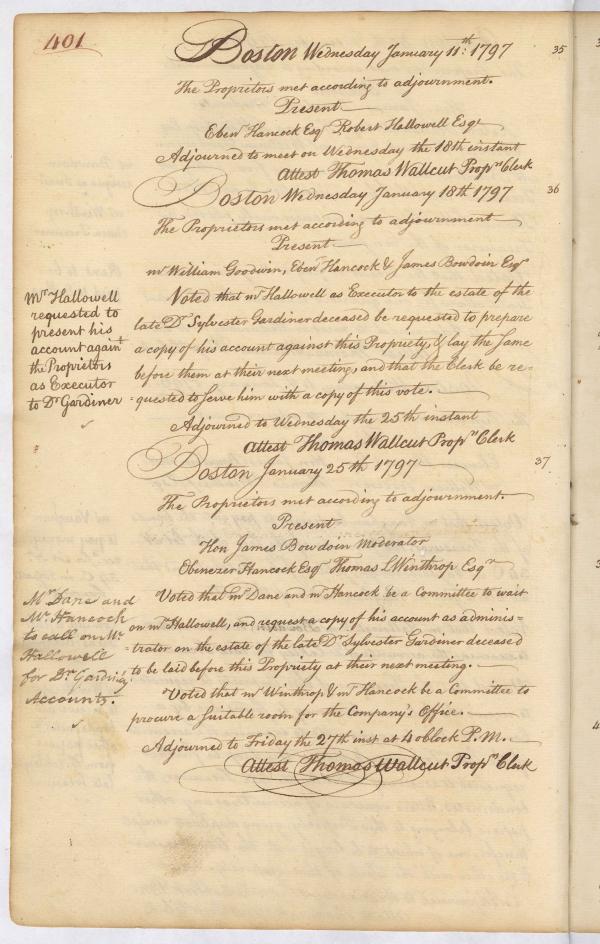 401
Boston Wednesday January 11th: 1797
35
The Propritors met according to adjournment.
Present
Eben.r Hancock Esq.r Robert Hallowell Esq.r
Adjourned to meet on Wednesday the 18th instant
Attest Thomas Wallcut Prop.rs Clerk
Boston Wednesday January 18th 1797
36
The Propritors met according to adjournment
Present
m.r William Goodwin, Eben.r Hancock & James Bowdoin Esq.rs
Mr. Hallowell
requested to
present his
account again.st
the Propritors
as Executor
to Dr Gardiner
Voted that m.r Hallowell as Executor to the estate of the
late D.r Sylvester Gardiner deceased be requested to prepare
a copy of his account against this Propriety, & lay the same
before them at their next meeting, and that the Clerk be re=
=quested to serve him with a copy of this vote.
Adjourned to Wednesday the 25th instant
Attest Thomas Wallcut Prop.rs Clerk
Boston January 25th 1797
37
The Propritors met according to adjournment.
Present
Hon James Bowdoin Moderator
Ebenezer Hancock Esq.r Thomas L Winthrop Esq.rs
Mr. Dane and
Mr. Hancock
to call on Mr.
Hallowell
for Dr. Gardiner
Accounts.
Voted that m.r Dane and m.r Hancock be a Committee to wait
on m.r Hallowell, and request a copy of his account as adminis=
=trator on the estate of the late D.r Sylvester Gardiner deceased
to be laid before this Propriety at their next meeting.
Voted that m.r Winthrop & m.r Hancock be a Committee to
procure a suitable room for the Company's Office.
Adjourned to Friday the 27th inst at 4 oClock P.M.
Attest Thomas Wallcut Prop.rs Clerk